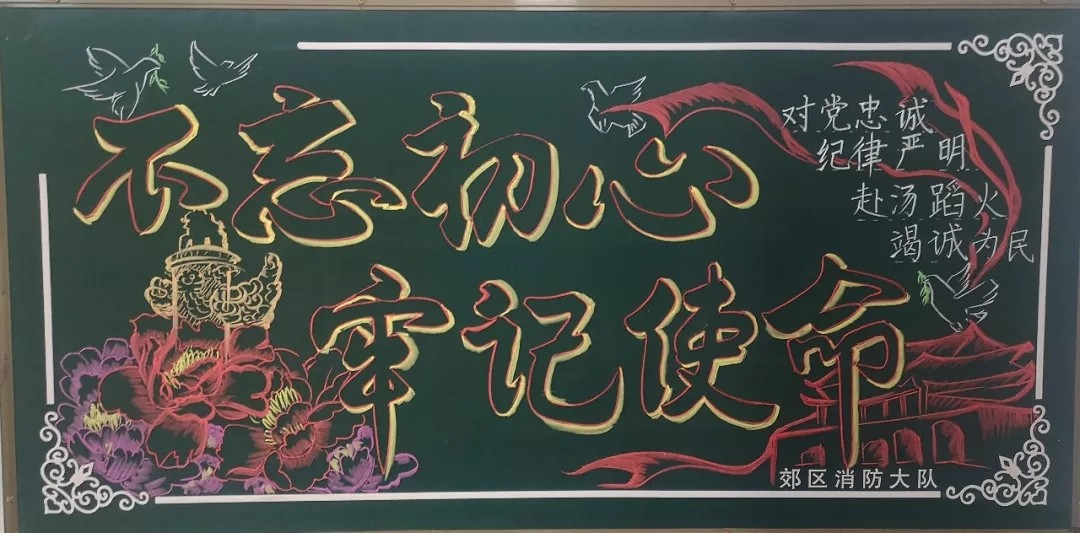 不忘初心
牢记使命
对党忠诚
纪律严明
赴汤蹈火
竭诚为民
郊区消防大队